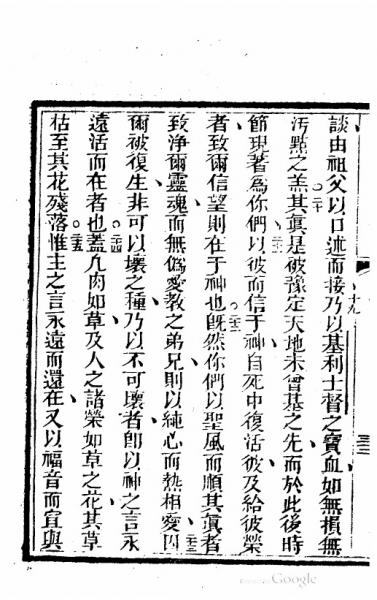 談由祖父以口述而接乃以基利士督之寶血如無損無
汚點之羔其眞是被豫定天地未曾基之先而於此後時
節現著爲你們以彼而信于神自死中復活彼及給彼榮
者致爾信望則在于神也旣然你們以聖風而順其眞者
致淨爾靈魂而無僞愛教之弟兄則以純心而熱相愛因
爾被復生非可以壞之種乃以不可壞者卽以神之言永
遠活而在者也蓋凡肉如草及人之諸榮如草之花其草
枯至其花殘落惟主之言永遠而還在又以福音而宣與
十九
二十
二一
二二
二三
二四
二五
Google